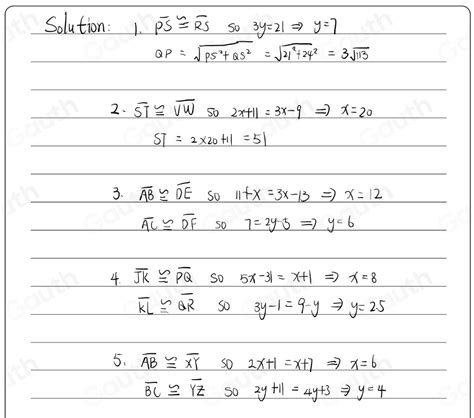 Solution: 1. PS ≅ RS so 3y=21 ⇒ y=7
QP = √PS²+QS² = √21²+24² = 3√113
2. ST ≅ VW so 2x+11 = 3x-9 ⇒ x=20
ST = 2×20+11 = 51
3. AB ≅ DE so 11+x = 3x-13 ⇒ x=12
AC ≅ DF so 7=2y-5 ⇒ y=6
4. JK ≅ PQ so 5x-31 = x+1 ⇒ x=8
KL ≅ QR so 3y-1 = 9-y ⇒ y=2.5
5. AB ≅ XY so 2x+1 = x+7 ⇒ x=6
BC ≅ YZ so 2y+11 = 4y+3 ⇒ y=4